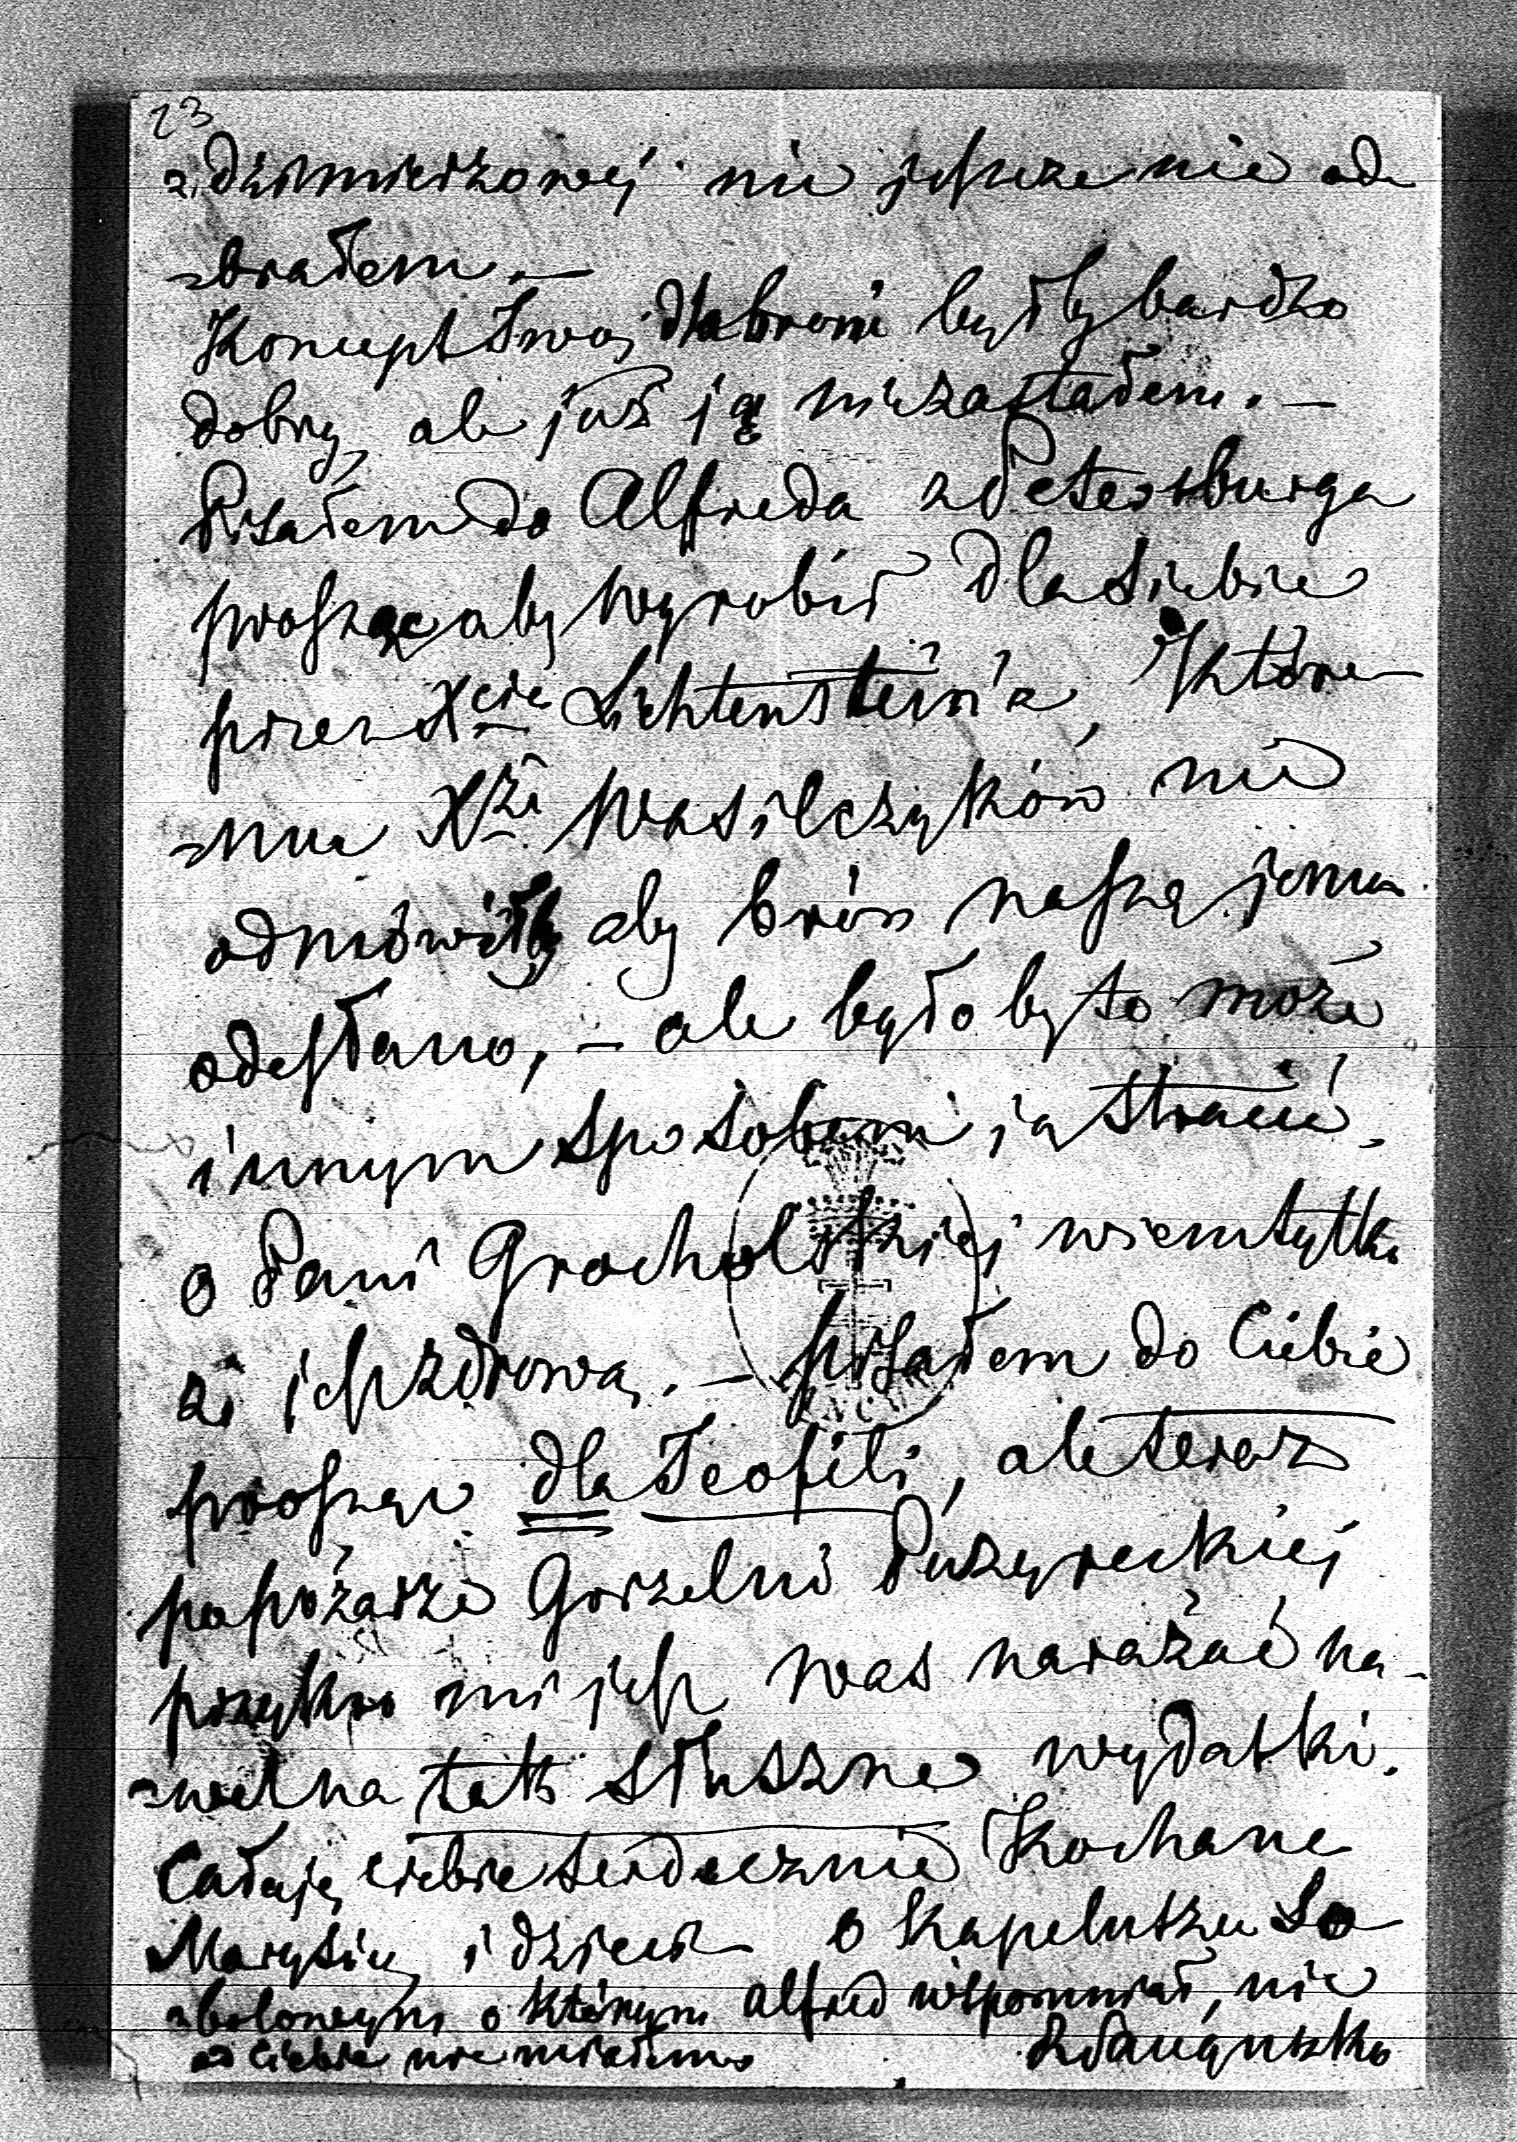 23
-dzimierzowej nic jeszcze nie od-
-brałem. —
Koncept Twoj dla broni byłby bardzo
dobry, ale już ją nie zastałem. —
Pisałem do Alfreda z Petersburga
prosząc aby wyrobił dla siebie
przez Xcie Lichtenstein'a, które-
-mu Xże Wasilczyków nie
odmówiłby aby broń naszą jemu
odesłano, — ale byłoby to może
innym sposobem ją stracić.
o Pani Grocholskiej wiem tylko
że jest zdrową. — pisałem do Ciebie
prosząc dla Teofili, ale teraz
po pożarze Gorzelni Pużyreckiej
przykro mi jest was narażać na-
-wet na tak słuszne wydatki.
Całuję ciebie serdecznie Kochane
Marysię i dzieci o kapeluszu So-
-bolowym o którym Alfred wspomniał, nic
od Ciebie nie miałem.
RSanguszko